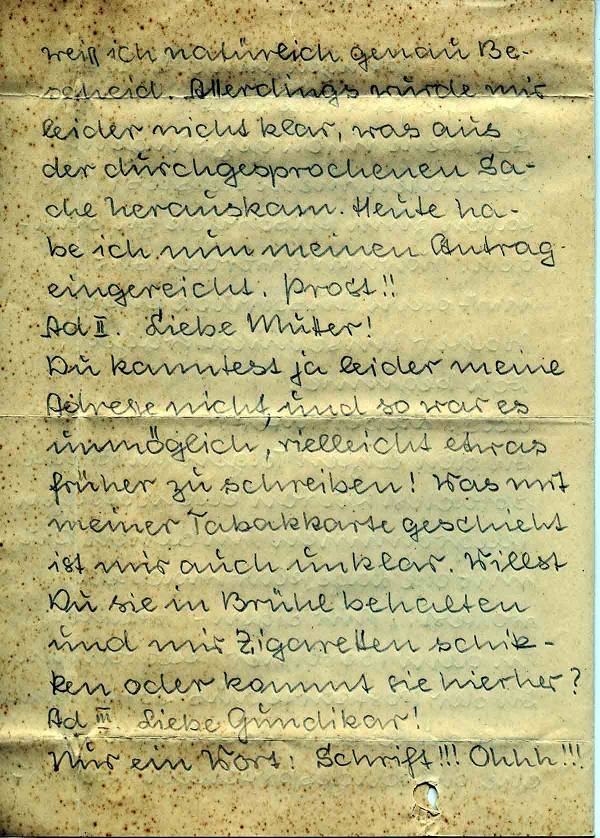 weiß ich natürlich genau Be-
scheid. Allerdings wurde mir
leider nicht klar, was aus
der durchgesprochenen Sa-
che herauskam. Heute ha-
be ich nun meinen Antrag
eingereicht. Prost!!
Ad II. Liebe Mutter!
Du kanntest ja leider meine
Adresse nicht, und so war es
unmöglich, vielleicht etwas
früher zu schreiben! Was mit
meiner Tabakkarte geschieht
ist mir auch unklar. Willst
Du sie in Brühl behalten
und mir Zigaretten schik-
ken oder kommt sie hierher?
Ad III. Liebe Gundikar!
Nur ein Wort: Schrift!!! Ohhh!!!